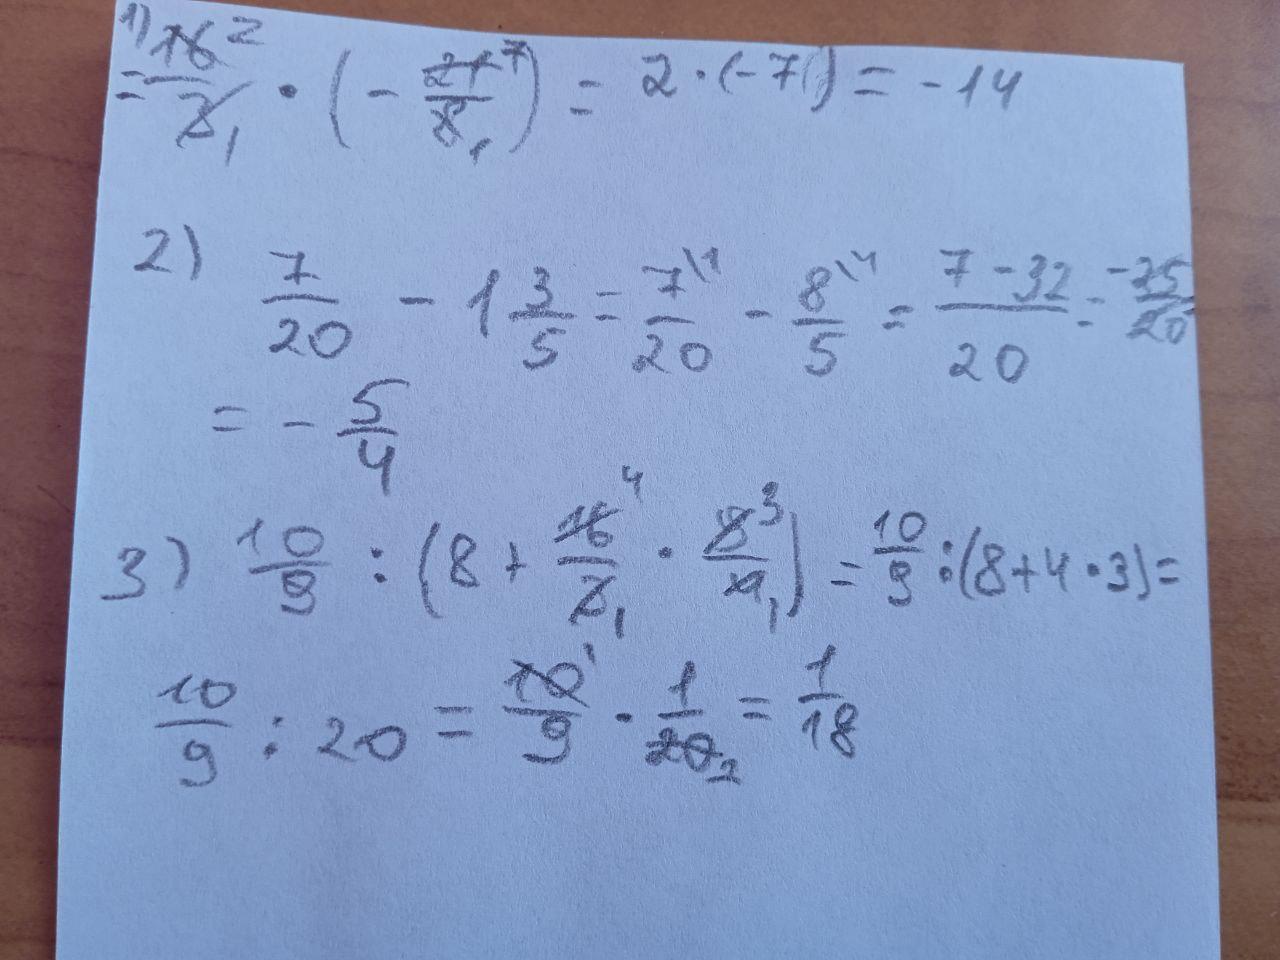 1)
= 16² / 3₁ · (- 21⁷ / 8₁) = 2 · (-7) = -14
2) 7/20 - 1 3/5 = 7\1 / 20 - 8\4 / 5 = (7 - 32)/20 = -25/20
= - 5/4
3) 10/9 : (8 + 16⁴ / 3₁ · 8³ / 4₁) = 10/9 : (8+4·3) =
10/9 : 20 = 10¹ / 9 · 1 / 20₂ = 1/18